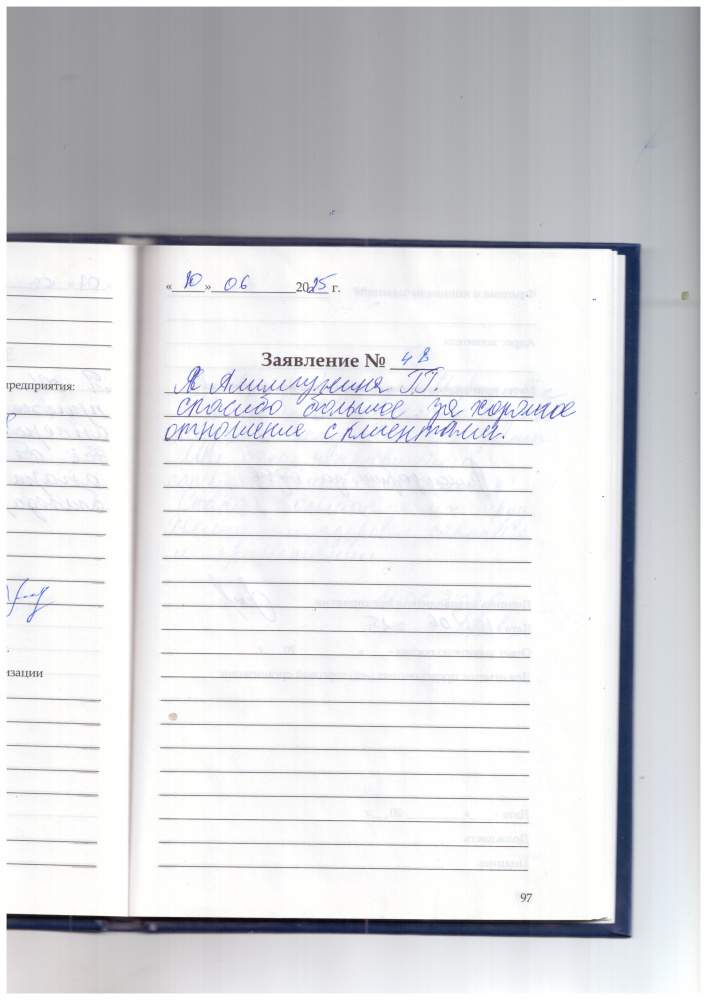 « 20 » 06 2025 г.
Заявление № 48
Я
спасибо большое за хорошое
отношение с клиентами.
предприятия:
изации
97